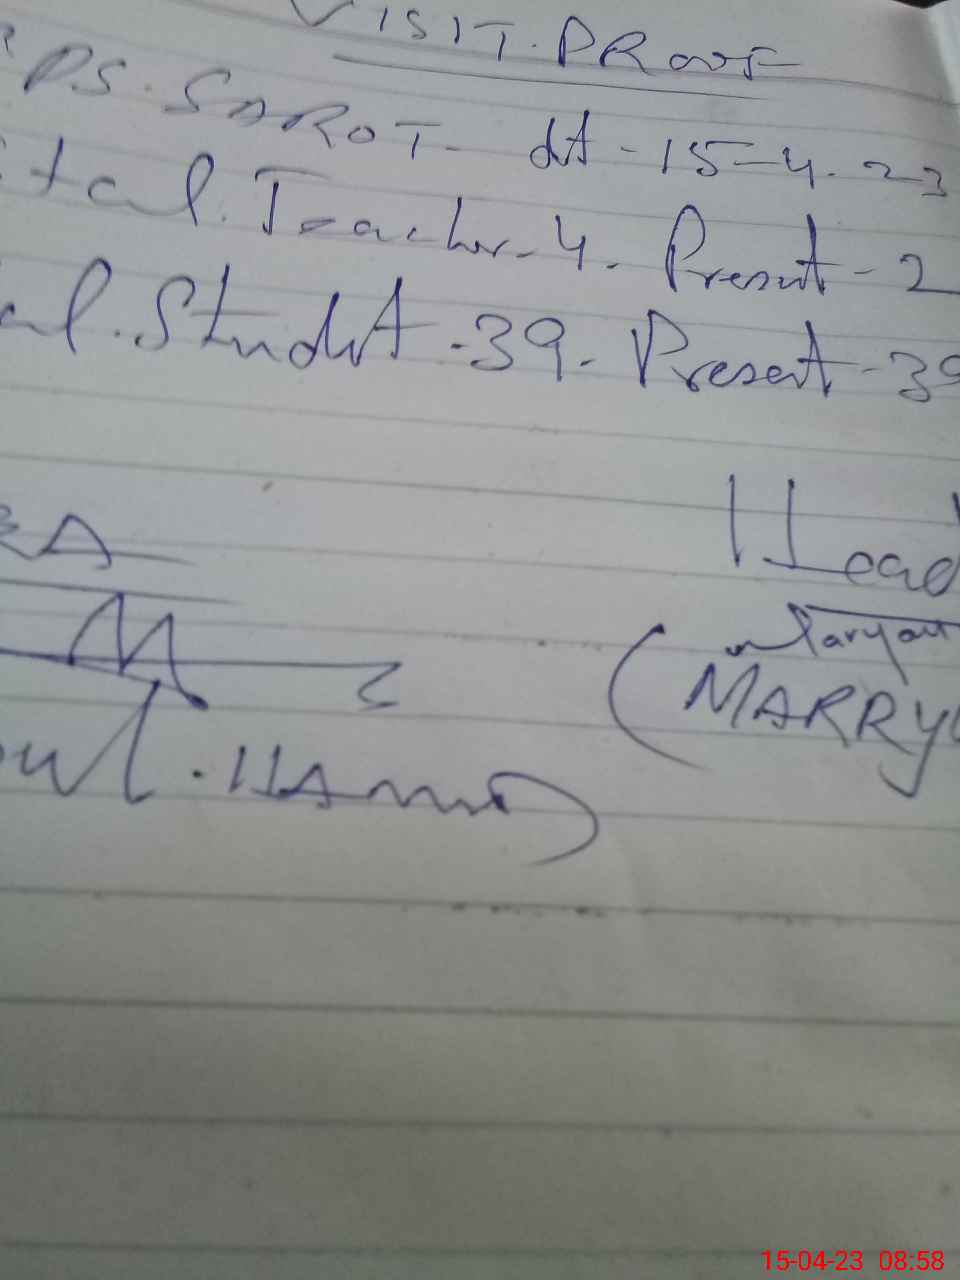 VISIT. PROOF
PS. SAROT- dt - 15-4.23
tal. Teacher-4. Present-2
al. Studt -39- Present -39
BA
Head
Maryam
(MARRY
oul. HAmid)
15-04-23 08:58